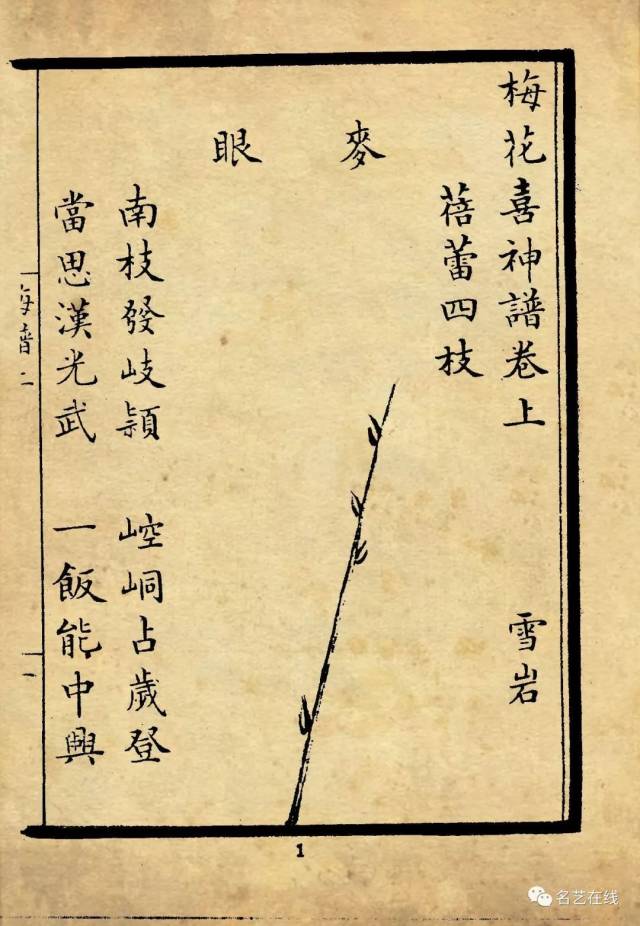 梅花喜神譜卷上
雪岩
蓓蕾四枝
麥眼
南枝發岐穎 崆峒占歲登
當思漢光武 一飯能中興
梅譜二
一
1
名艺在线